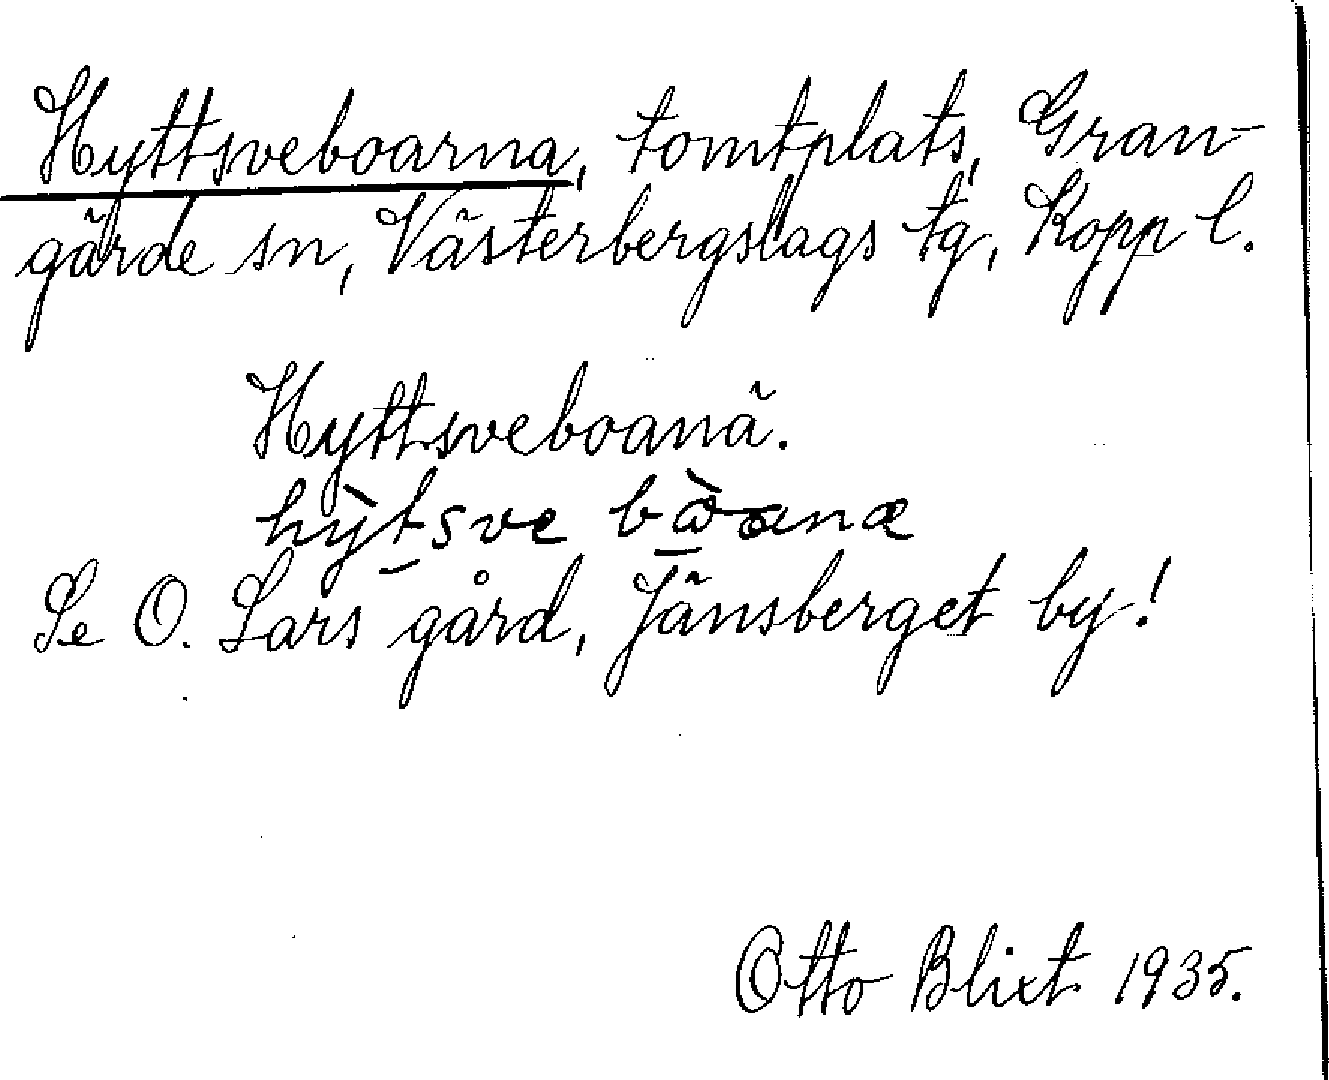 Hyttsveboarna, tomtplats, Gran-
gärde sn, Västerbergslags tg, Kopp l.
Hyttsveboanä.
hỳtsve bὼanæ
Se O. Lars gård, Jänsberget by!
Otto Blixt 1935.